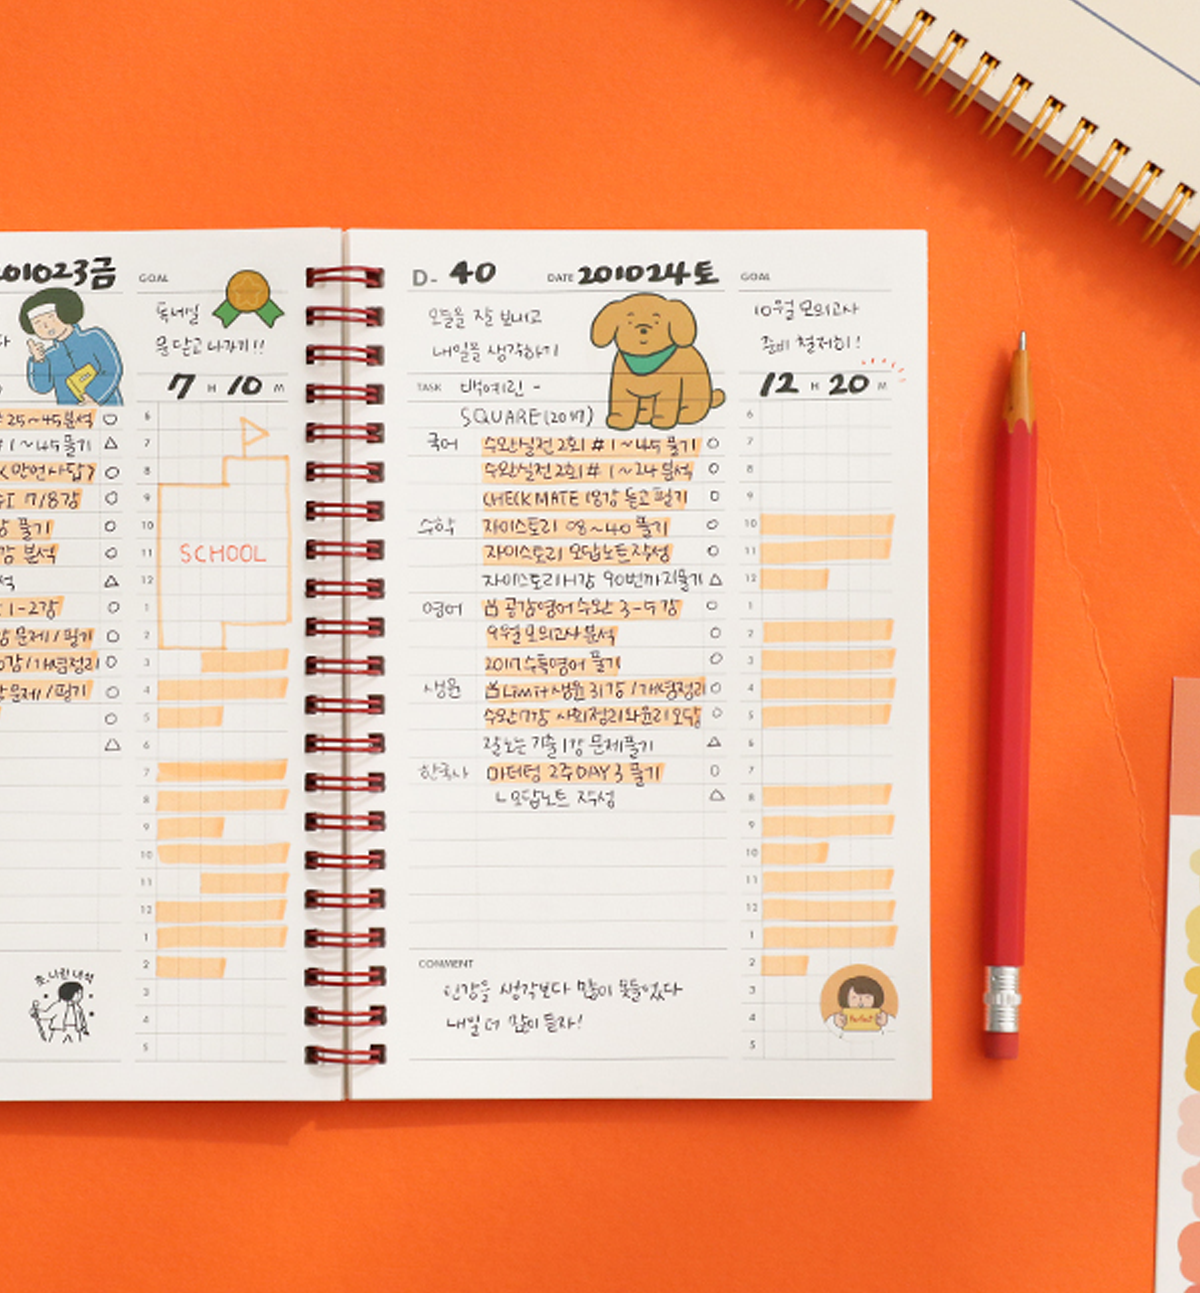 201023금
GOAL
독서실
문닫고 나가기!!
7 H 10 M
#25~45분석
#1~45풀기
I 7/8강
강 풀기
강 분석
1-2강
강 문제/필기
강/개념정리
강 문제/필기
6
7
8
9
10
11
12
1
2
3
4
5
6
7
8
9
10
11
12
1
2
3
4
5
SCHOOL
D- 40
DATE 201024토
오늘을 잘 보내고
내일을 생각하기
TASK 백예린 -
SQUARE(2017)
국어 수완실전2회 #1~45 풀기
수완실전2회 #1~24 분석
CHECKMATE 18강 듣고 필기
수학 자이스토리 08~40 풀기
자이스토리 오답노트작성
자이스토리 90번까지풀기
영어 공감영어수완 3-5강
9월모의고사분석
2017수특영어 풀기
생윤 Limit생윤 31강/개념정리
수완17강 사회정의와윤리 오답
잘노는 기출1강 문제풀기
한국사 마더텅 2주DAY3 풀기
ㄴ오답노트 작성
COMMENT
인강을 생각보다 많이 못들었다
내일 더 많이 듣자!
GOAL
10월 모의고사
준비 철저히!
12 H 20 M
6
7
8
9
10
11
12
1
2
3
4
5
6
7
8
9
10
11
12
1
2
3
4
5
Perfect